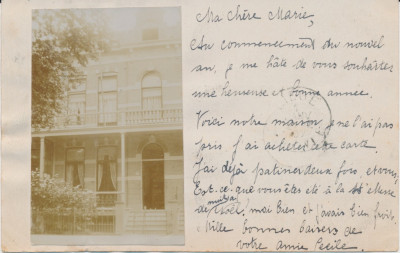 Ma chère Marie,
Au commencement du nouvel
an, je me hâte de vous souhaiter
une heureuse et bonne année.
Voici notre maison, je ne l'ai pas
pris j'ai acheté cette card.
J'ai déjà patiner deux fois, et vous,
Est-ce que vous êtes été à la Messe
minuit
de Noël, moi bien et j'avais bien froid.
Mille bonnes baisers de
votre amie Cécile.